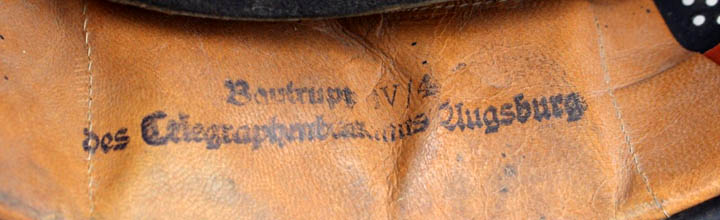 Bautrupp IV/4
des Telegraphenbauamts Augsburg